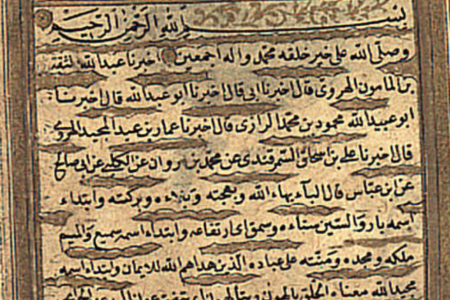 بسم الله الرحمن الرحيم
وصلى الله على خير خلقه محمد واله اجمعين اخبرنا عبد الله الثقة
بن المامون الهروى قال اخبرنا ابى قال اخبرنا ابو عبد الله قال اخبرنا
ابو عبيد الله محمود بن محمد الرازى قال اخبرنا عمار بن عبد المجيد الهروى
قال اخبرنا على بن اسحاق السمرقندى عن محمد بن مروان عن الكلبى عن ابى صالح
عن ابن عباس قال الباء بهاء الله وبهجته وبلاءه وبركته وابتداء
اسمه بارى والسين سناءه وسموه اى ارتفاعه وابتداء اسمه سميع والميم
ملكه ومجده ومنته على عباده الذين هداهم الله للايمان وابتداء اسمه
مجيد الله معناه الخلق